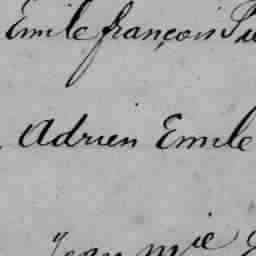 Emile françois
Adrien Emile
Jean mie